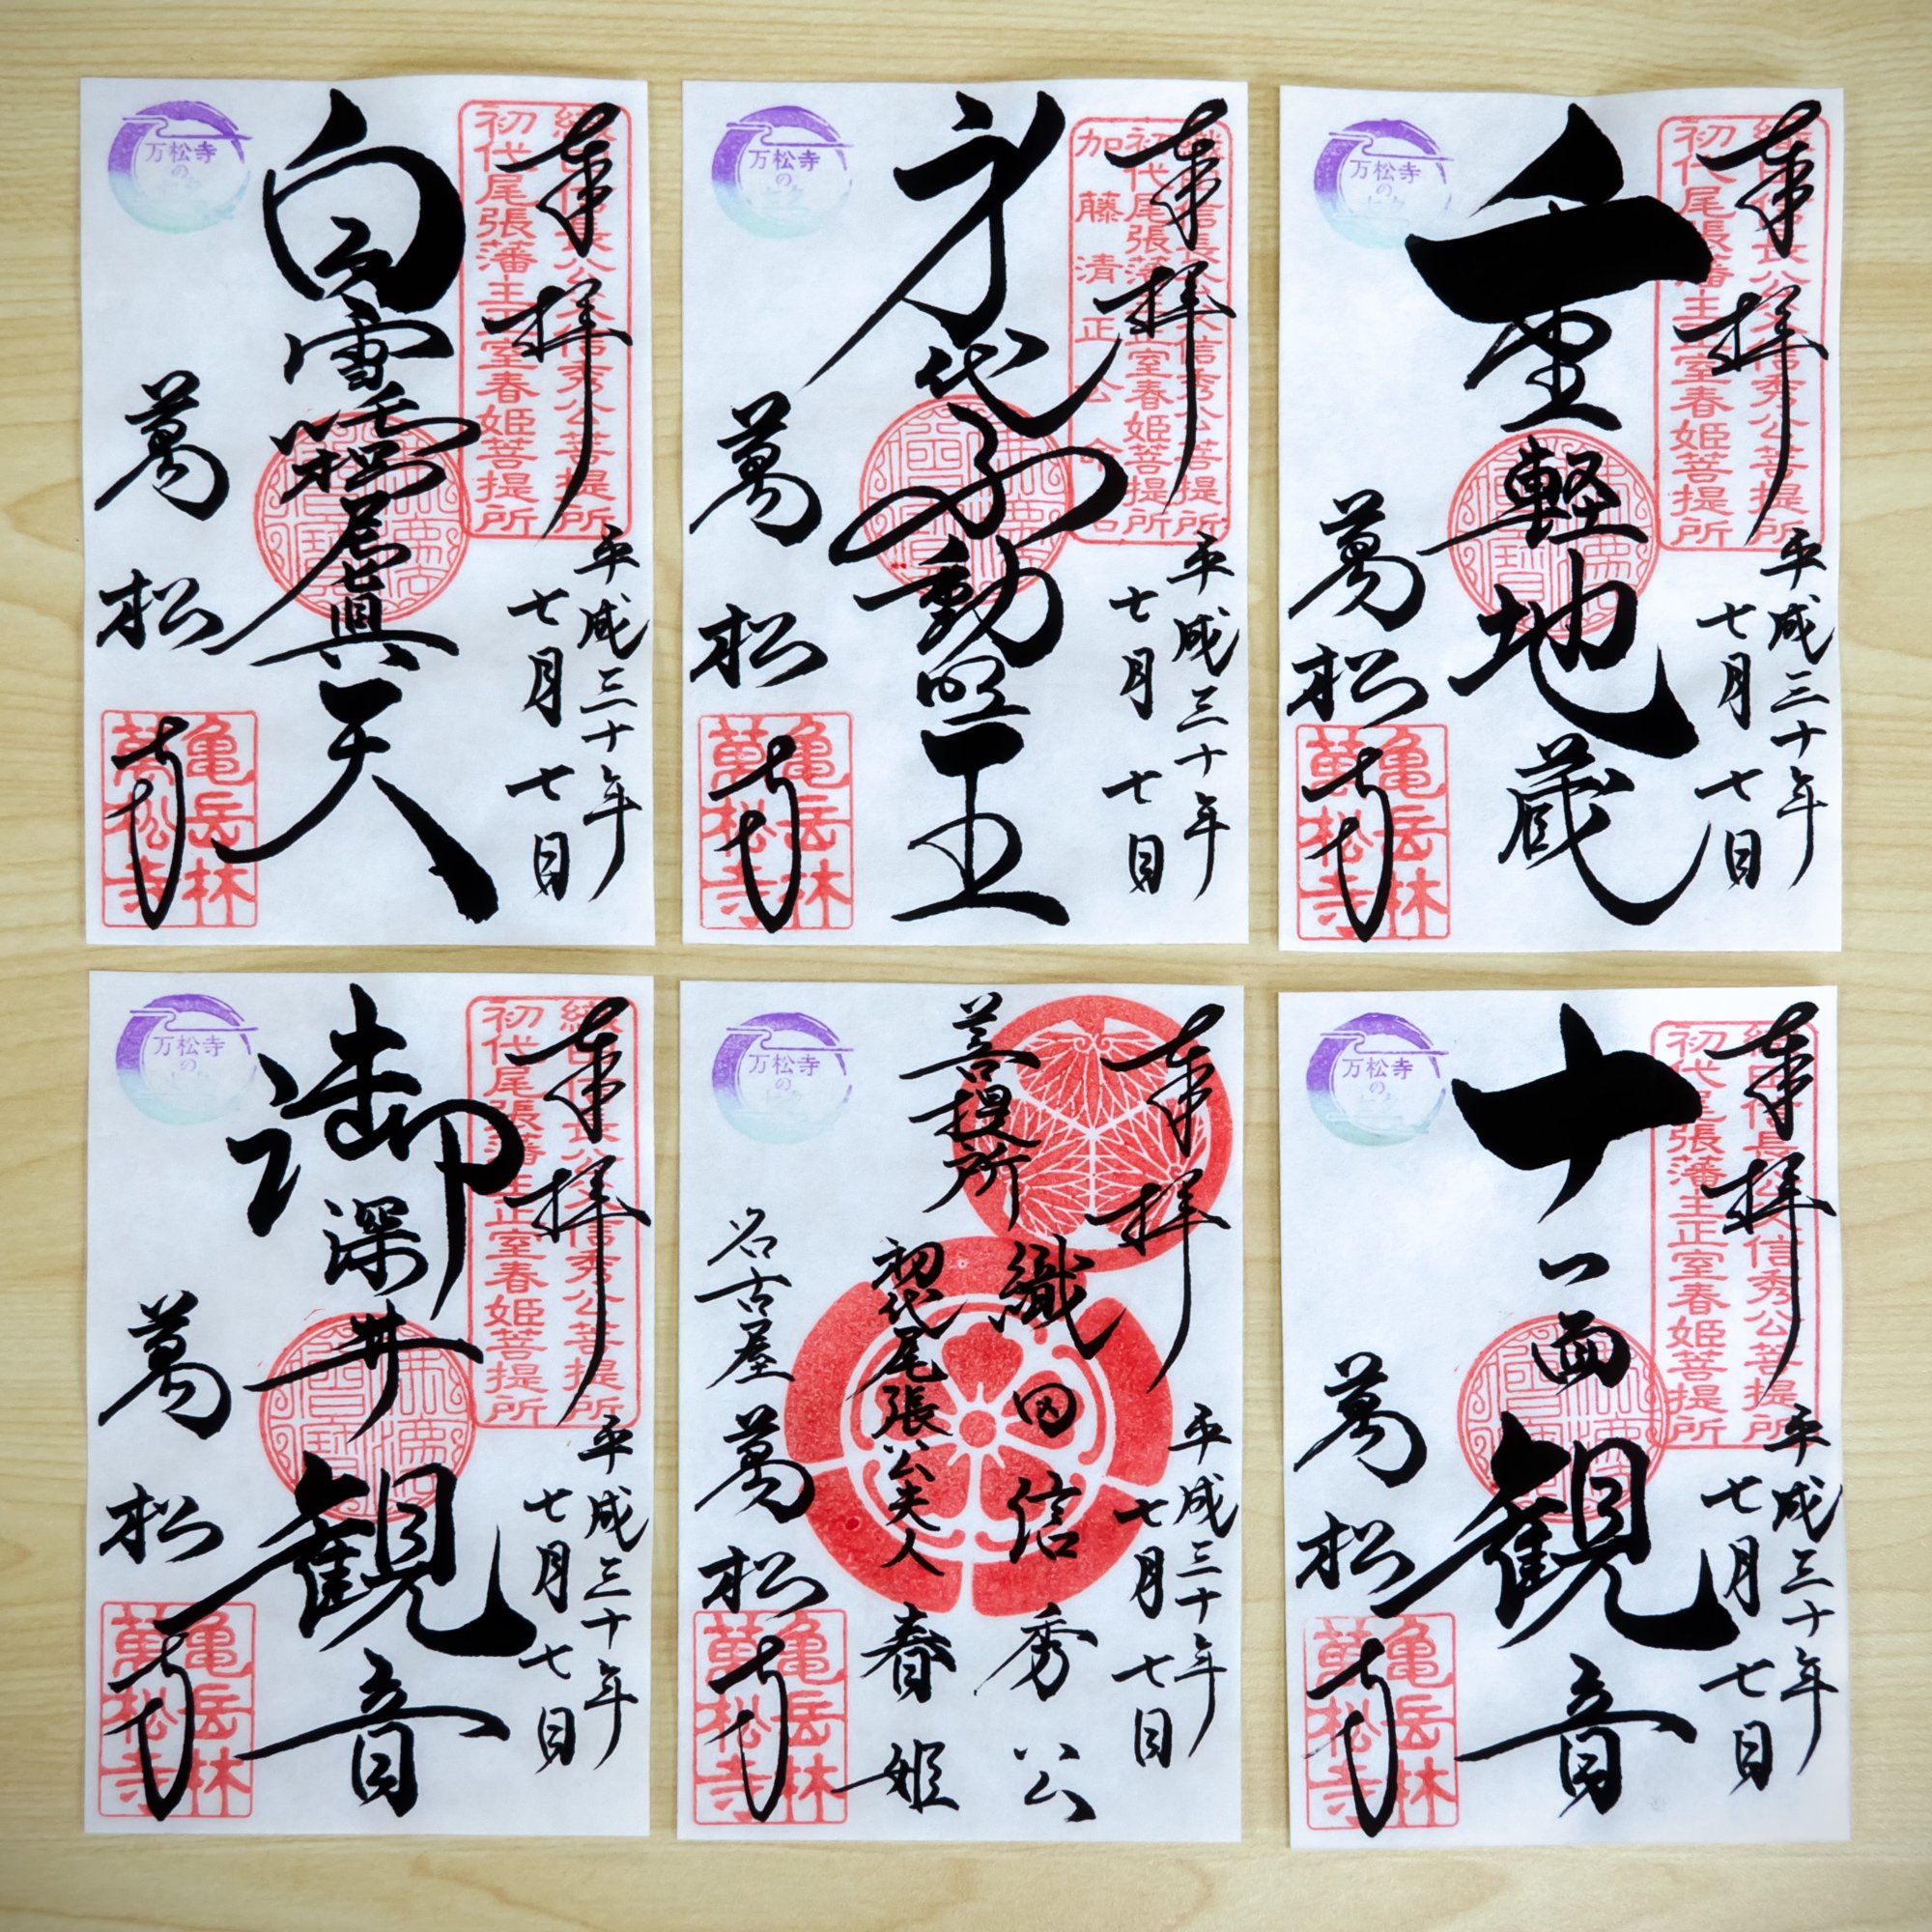 奉拝
織田信長公父信秀公菩提所
初代尾張藩主正室春姫菩提所
平成三十年
七月七日
白雪稲荷
天
萬松寺
亀岳林
萬松寺
万松寺
の
奉拝
織田信長公父信秀公菩提所
初代尾張藩主正室春姫菩提所
加藤清正公
平成三十年
七月七日
身代不動明王
萬松寺
亀岳林
萬松寺
万松寺
の
奉拝
織田信長公父信秀公菩提所
初代尾張藩主正室春姫菩提所
平成三十年
七月七日
重軽地蔵
萬松寺
亀岳林
萬松寺
万松寺
の
奉拝
織田信長公父信秀公菩提所
初代尾張藩主正室春姫菩提所
平成三十年
七月七日
御深井観音
萬松寺
亀岳林
萬松寺
万松寺
の
奉拝
平成三十年
七月七日
菩提所
織田信秀公
初代尾張公夫人
春姫
名古屋
萬松寺
亀岳林
萬松寺
万松寺
の
奉拝
織田信長公父信秀公菩提所
初代尾張藩主正室春姫菩提所
平成三十年
七月七日
十一面観音
萬松寺
亀岳林
萬松寺
万松寺
の